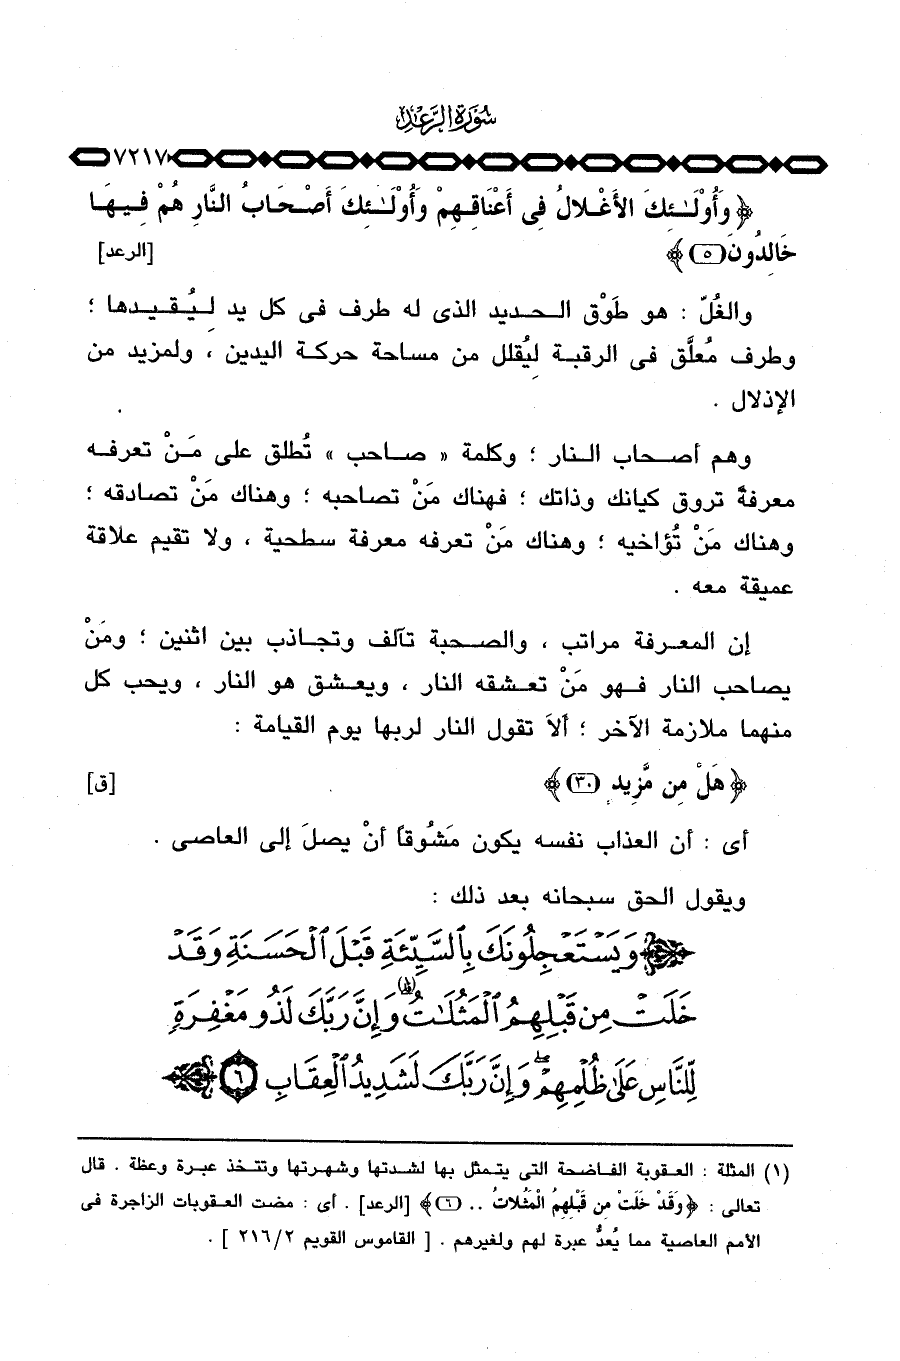 سُورَةُ الرَّعْدِ
٧٢١٧
﴿ وَأُوْلَـٰئِكَ الأَغْلالُ فِى أَعْنَاقِهِمْ وَأُوْلَـٰئِكَ أَصْحَابُ النَّارِ هُمْ فِيهَا
خَالِدُونَ (٥) ﴾ [الرعد]
والغُلّ : هو طَوْق الحديد الذى له طرف فى كل يد ليُقيدها ؛
وطرف مُعلَّق فى الرقبة ليُقلل من مساحة حركة اليدين ، ولمزيد من
الإذلال .
وهم أصحاب النار ؛ وكلمة « صاحب » تُطلق على مَنْ تعرفه
معرفةً تروق كيانك وذاتك ؛ فهناك مَنْ تصاحبه ؛ وهناك مَنْ تصادقه ؛
وهناك مَنْ تُؤاخيه ؛ وهناك مَنْ تعرفه معرفة سطحية ، ولا تقيم علاقة
عميقة معه .
إن المعرفة مراتب ، والصحبة تآلف وتجاذب بين اثنين ؛ ومَنْ
يصاحب النار فهو مَنْ تعشقه النار ، ويعشق هو النار ، ويحب كل
منهما ملازمة الآخر ؛ ألاَ تقول النار لربها يوم القيامة :
﴿ هَلْ مِن مَّزِيدٍ (٣٠) ﴾ [ق]
أى : أن العذاب نفسه يكون مَشُوقاً أنْ يصلَ إلى العاصى .
ويقول الحق سبحانه بعد ذلك :
﴿ وَيَسْتَعْجِلُونَكَ بِٱلسَّيِّئَةِ قَبْلَ ٱلْحَسَنَةِ وَقَدْ
خَلَتْ مِن قَبْلِهِمُ ٱلْمَثُلَـٰتُ (١) وَإِنَّ رَبَّكَ لَذُو مَغْفِرَةٍ
لِّلنَّاسِ عَلَىٰ ظُلْمِهِمْ ۖ وَإِنَّ رَبَّكَ لَشَدِيدُ ٱلْعِقَابِ ٦ ﴾
(١) المثلة : العقوبة الفاضحة التى يتمثل بها لشدتها وشهرتها وتتخذ عبرة وعظة . قال
تعالى : ﴿ وَقَدْ خَلَتْ مِن قَبْلِهِمُ الْمَثُلاتُ .. (٦) ﴾ [الرعد] . أى : مضت العقوبات الزاجرة فى
الأمم العاصية مما يُعدُّ عبرة لهم ولغيرهم . [ القاموس القويم ٢١٦/٢ ] .